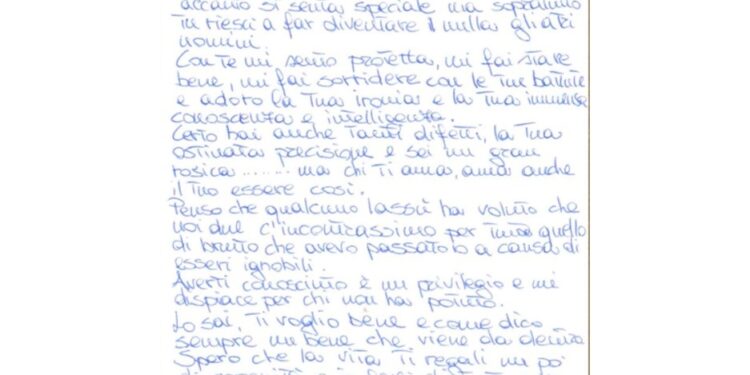 accanto si senta speciale ma soprattutto
tu riesci a far diventare il nulla gli altri
uomini.
Con te mi sento protetta, mi fai stare
bene, mi fai sorridere con le tue battute
e adoro la Tua ironia e la Tua immensa
conoscenza e intelligenza.
Certo hai anche tanti difetti, la Tua
ostinata precisione e sei un gran
rosica ........ ma chi Ti ama, ama anche
il Tuo essere così.
Penso che qualcuno lassù ha voluto che
noi due c'incontrassimo per tutto quello
di brutto che avevo passato io a causa di
esseri ignobili.
Averti conosciuto è un privilegio e mi
dispiace per chi non ha potuto.
Lo sai, Ti voglio bene e come dico
sempre un bene che viene da dentro
Spero che la vita Ti regali un po'